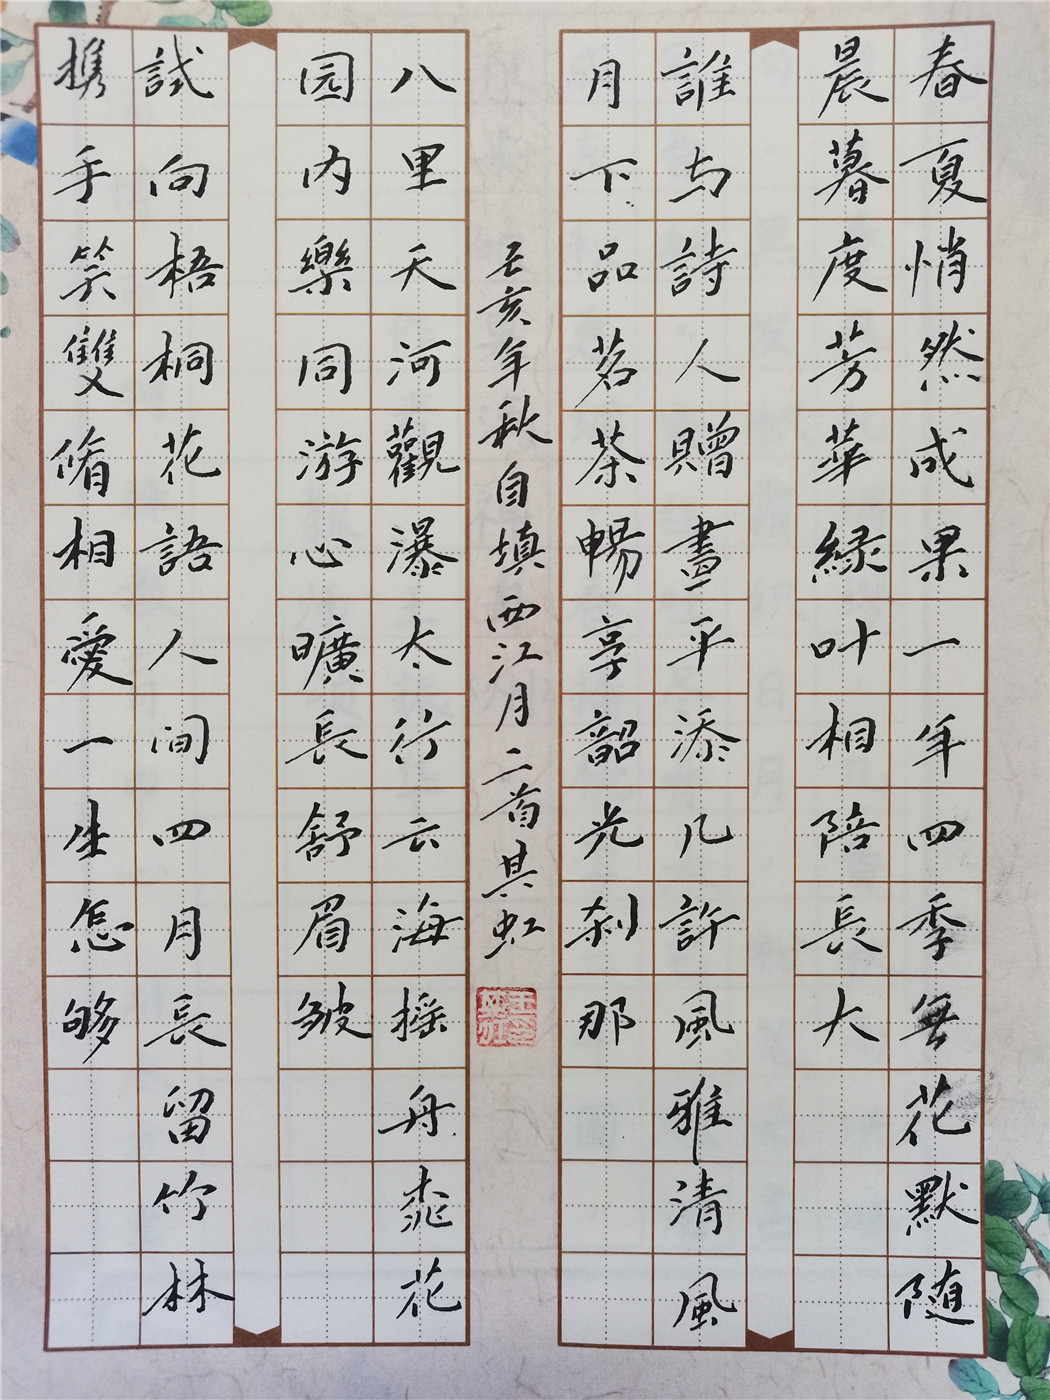 春夏悄然成果一年四季無花默随
晨暮度芳華緑叶相陪長大
誰与詩人贈畫平添几許風雅清風
月下品茗茶暢享韶光刹那
己亥年秋自填西江月二首其虹
八里天河觀瀑太行云海摇舟桃花
园内樂同游心曠長舒眉皱
試向梧桐花語人间四月長留竹林
携手笑雙脩相愛一生怎够